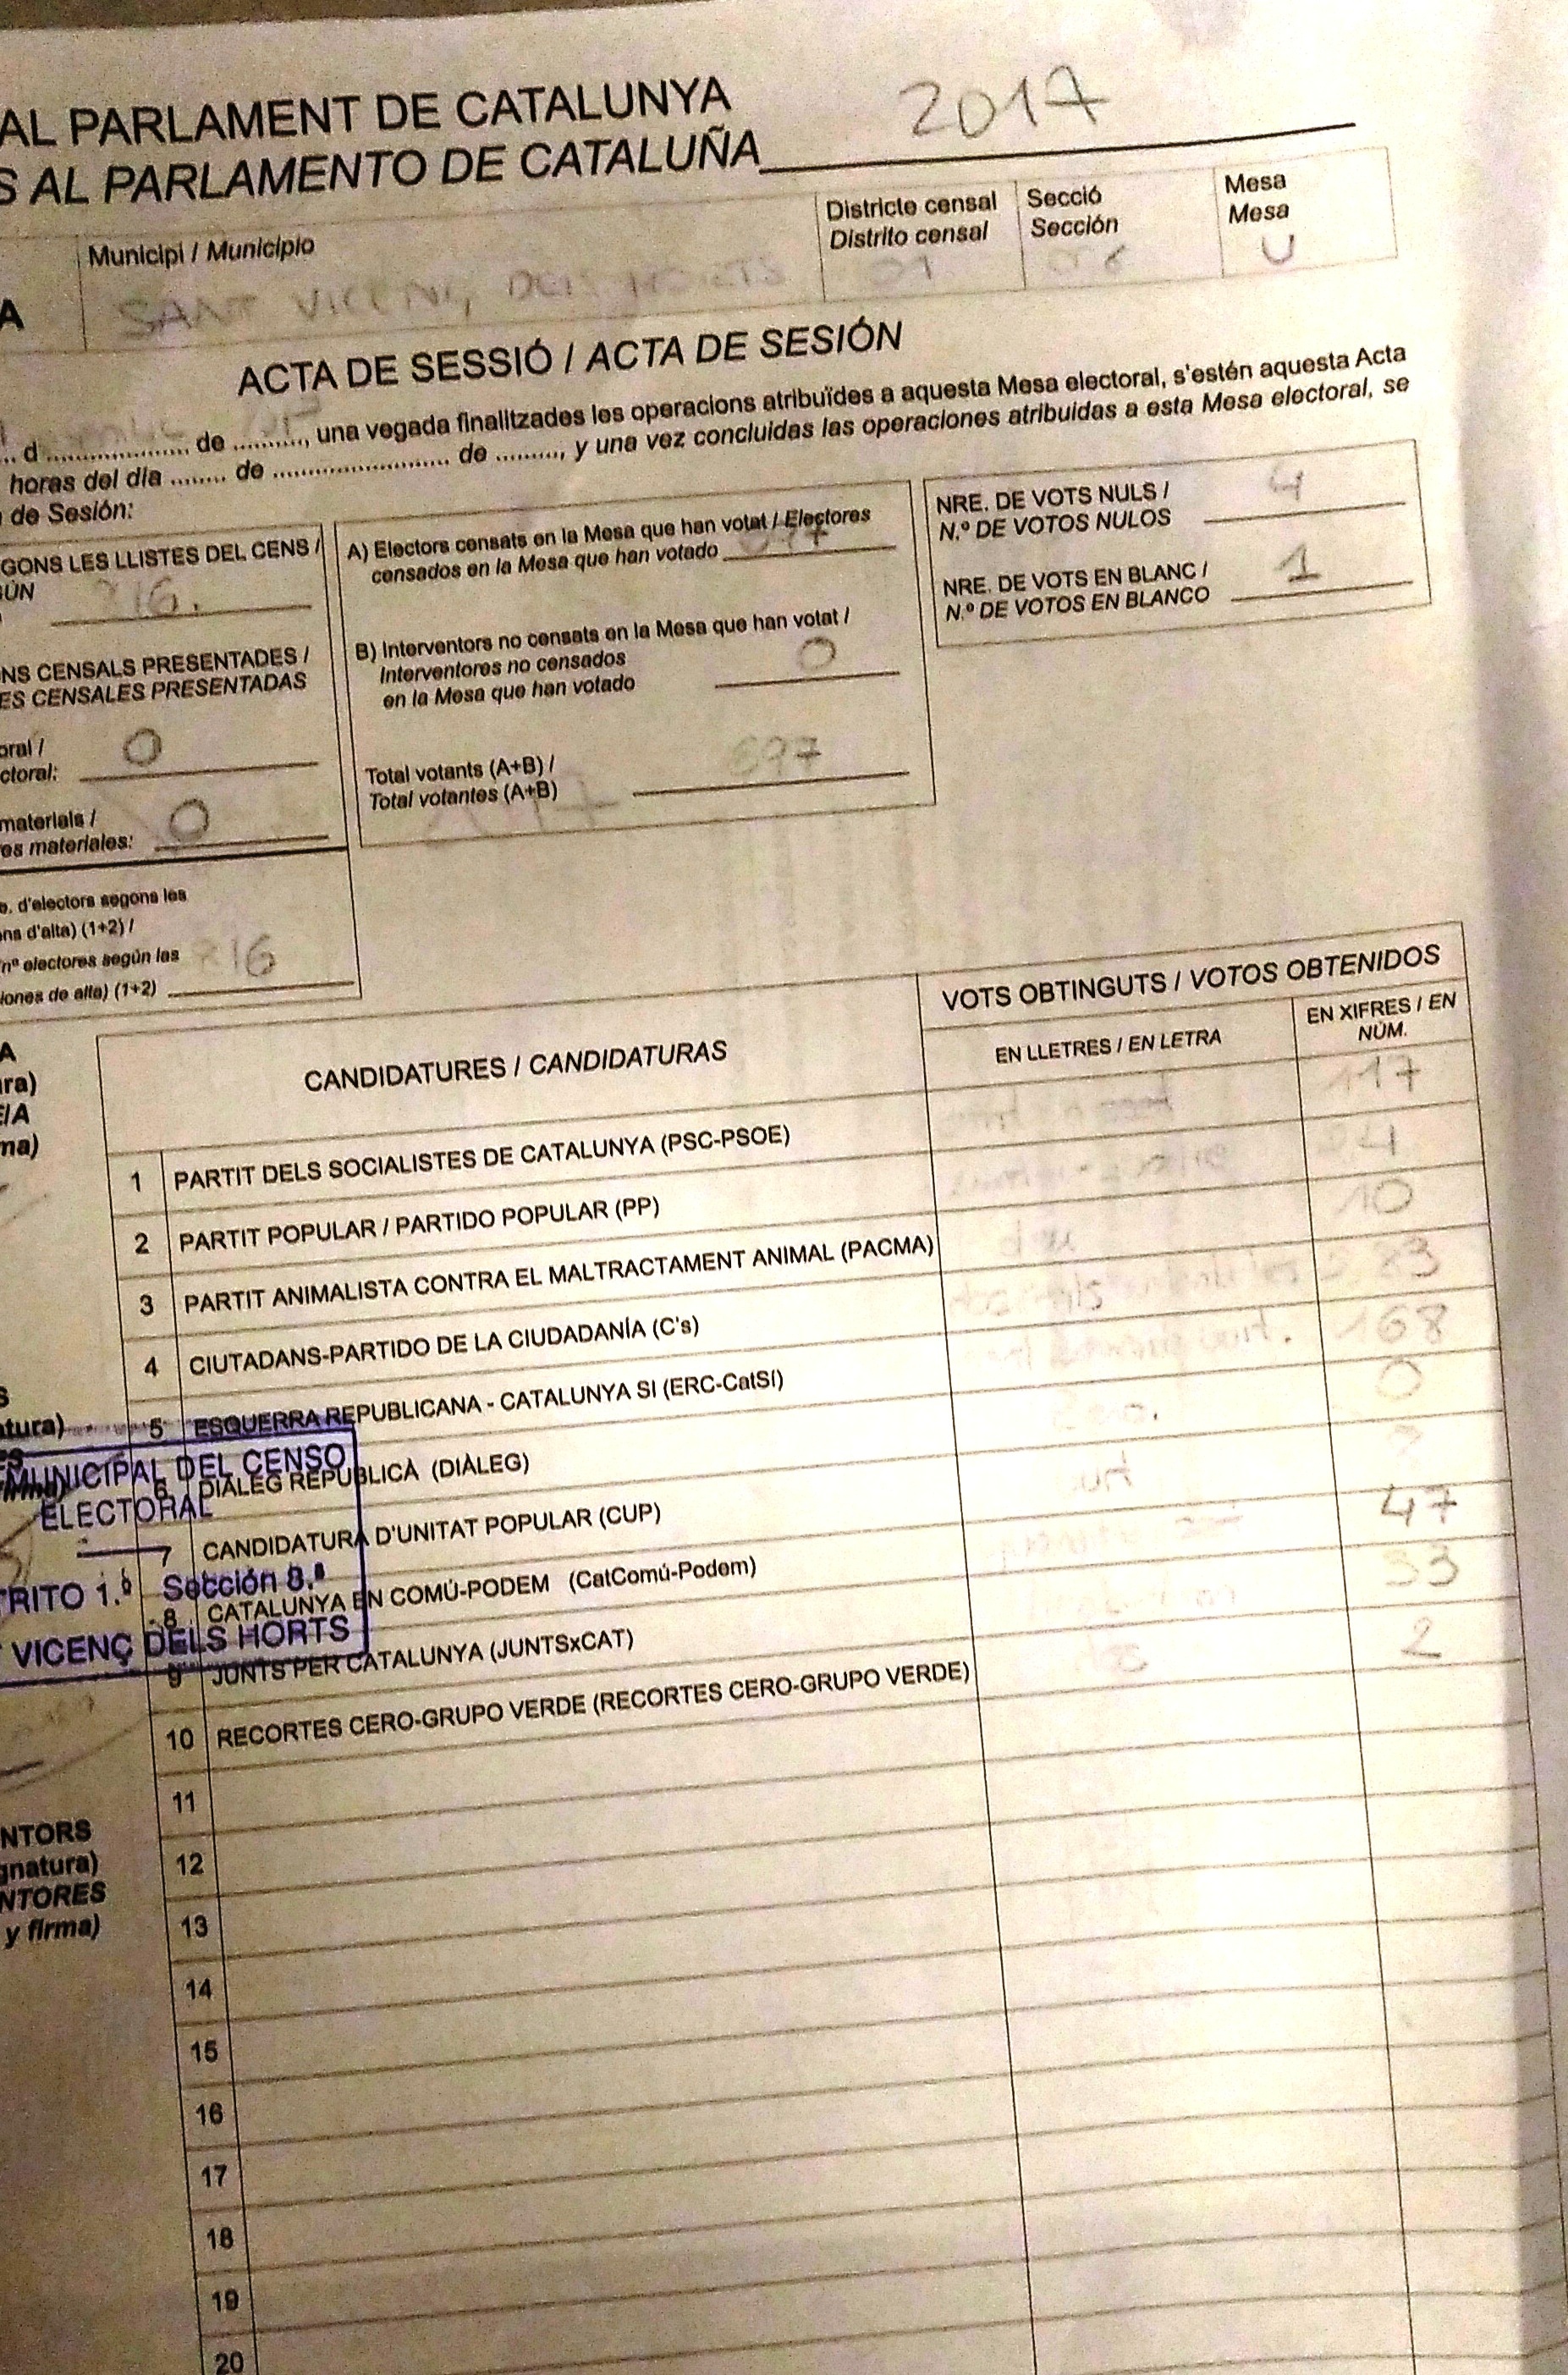 AL PARLAMENT DE CATALUNYA
S AL PARLAMENTO DE CATALUÑA 2017
Municipi / Municipio
SANT VICENÇ DELS HORTS
Districte censal
Distrito censal
01
Secció
Sección
Mesa
Mesa
U
A
ACTA DE SESSIÓ / ACTA DE SESIÓN
d .................... de .........., una vegada finalitzades les operacions atribuïdes a aquesta Mesa electoral, s'estén aquesta Acta
horas del día ........ de ......................... de ........., y una vez concluidas las operaciones atribuidas a esta Mesa electoral, se
de Sesión:
GONS LES LLISTES DEL CENS /
ÚN
816.
NS CENSALS PRESENTADES /
ES CENSALES PRESENTADAS
oral /
ctoral: 0
materials /
es materiales: 0
e. d'electors segons les
ons d'alta) (1+2) /
nº electores según las
iones de alta) (1+2) 816
A) Electors censats en la Mesa que han votat / Electores
censados en la Mesa que han votado 697
B) Interventors no censats en la Mesa que han votat /
Interventores no censados
en la Mesa que han votado 0
Total votants (A+B) /
Total votantes (A+B) 697
NRE. DE VOTS NULS /
N.º DE VOTOS NULOS 4
NRE. DE VOTS EN BLANC /
N.º DE VOTOS EN BLANCO 1
CANDIDATURES / CANDIDATURAS
VOTS OBTINGUTS / VOTOS OBTENIDOS
EN LLETRES / EN LETRA
EN XIFRES / EN
NÚM.
1 PARTIT DELS SOCIALISTES DE CATALUNYA (PSC-PSOE) 117
2 PARTIT POPULAR / PARTIDO POPULAR (PP)
3 PARTIT ANIMALISTA CONTRA EL MALTRACTAMENT ANIMAL (PACMA) 10
4 CIUTADANS-PARTIDO DE LA CIUDADANÍA (C's)
5 ESQUERRA REPUBLICANA - CATALUNYA SI (ERC-CatSí) 168
6 DIÀLEG REPUBLICÀ (DIÀLEG) 0
7 CANDIDATURA D'UNITAT POPULAR (CUP)
8 CATALUNYA EN COMÚ-PODEM (CatComú-Podem) 47
9 JUNTS PER CATALUNYA (JUNTSxCAT) 53
10 RECORTES CERO-GRUPO VERDE (RECORTES CERO-GRUPO VERDE) 2
11
12
13
14
15
16
17
18
19
20
A
ra)
E/A
ma)
S
atura)
ES
MUNICIPAL DEL CENSO
ELECTORAL
RITO 1.º Sección 8.ª
VICENÇ DELS HORTS
NTORS
gnatura)
NTORES
y firma)